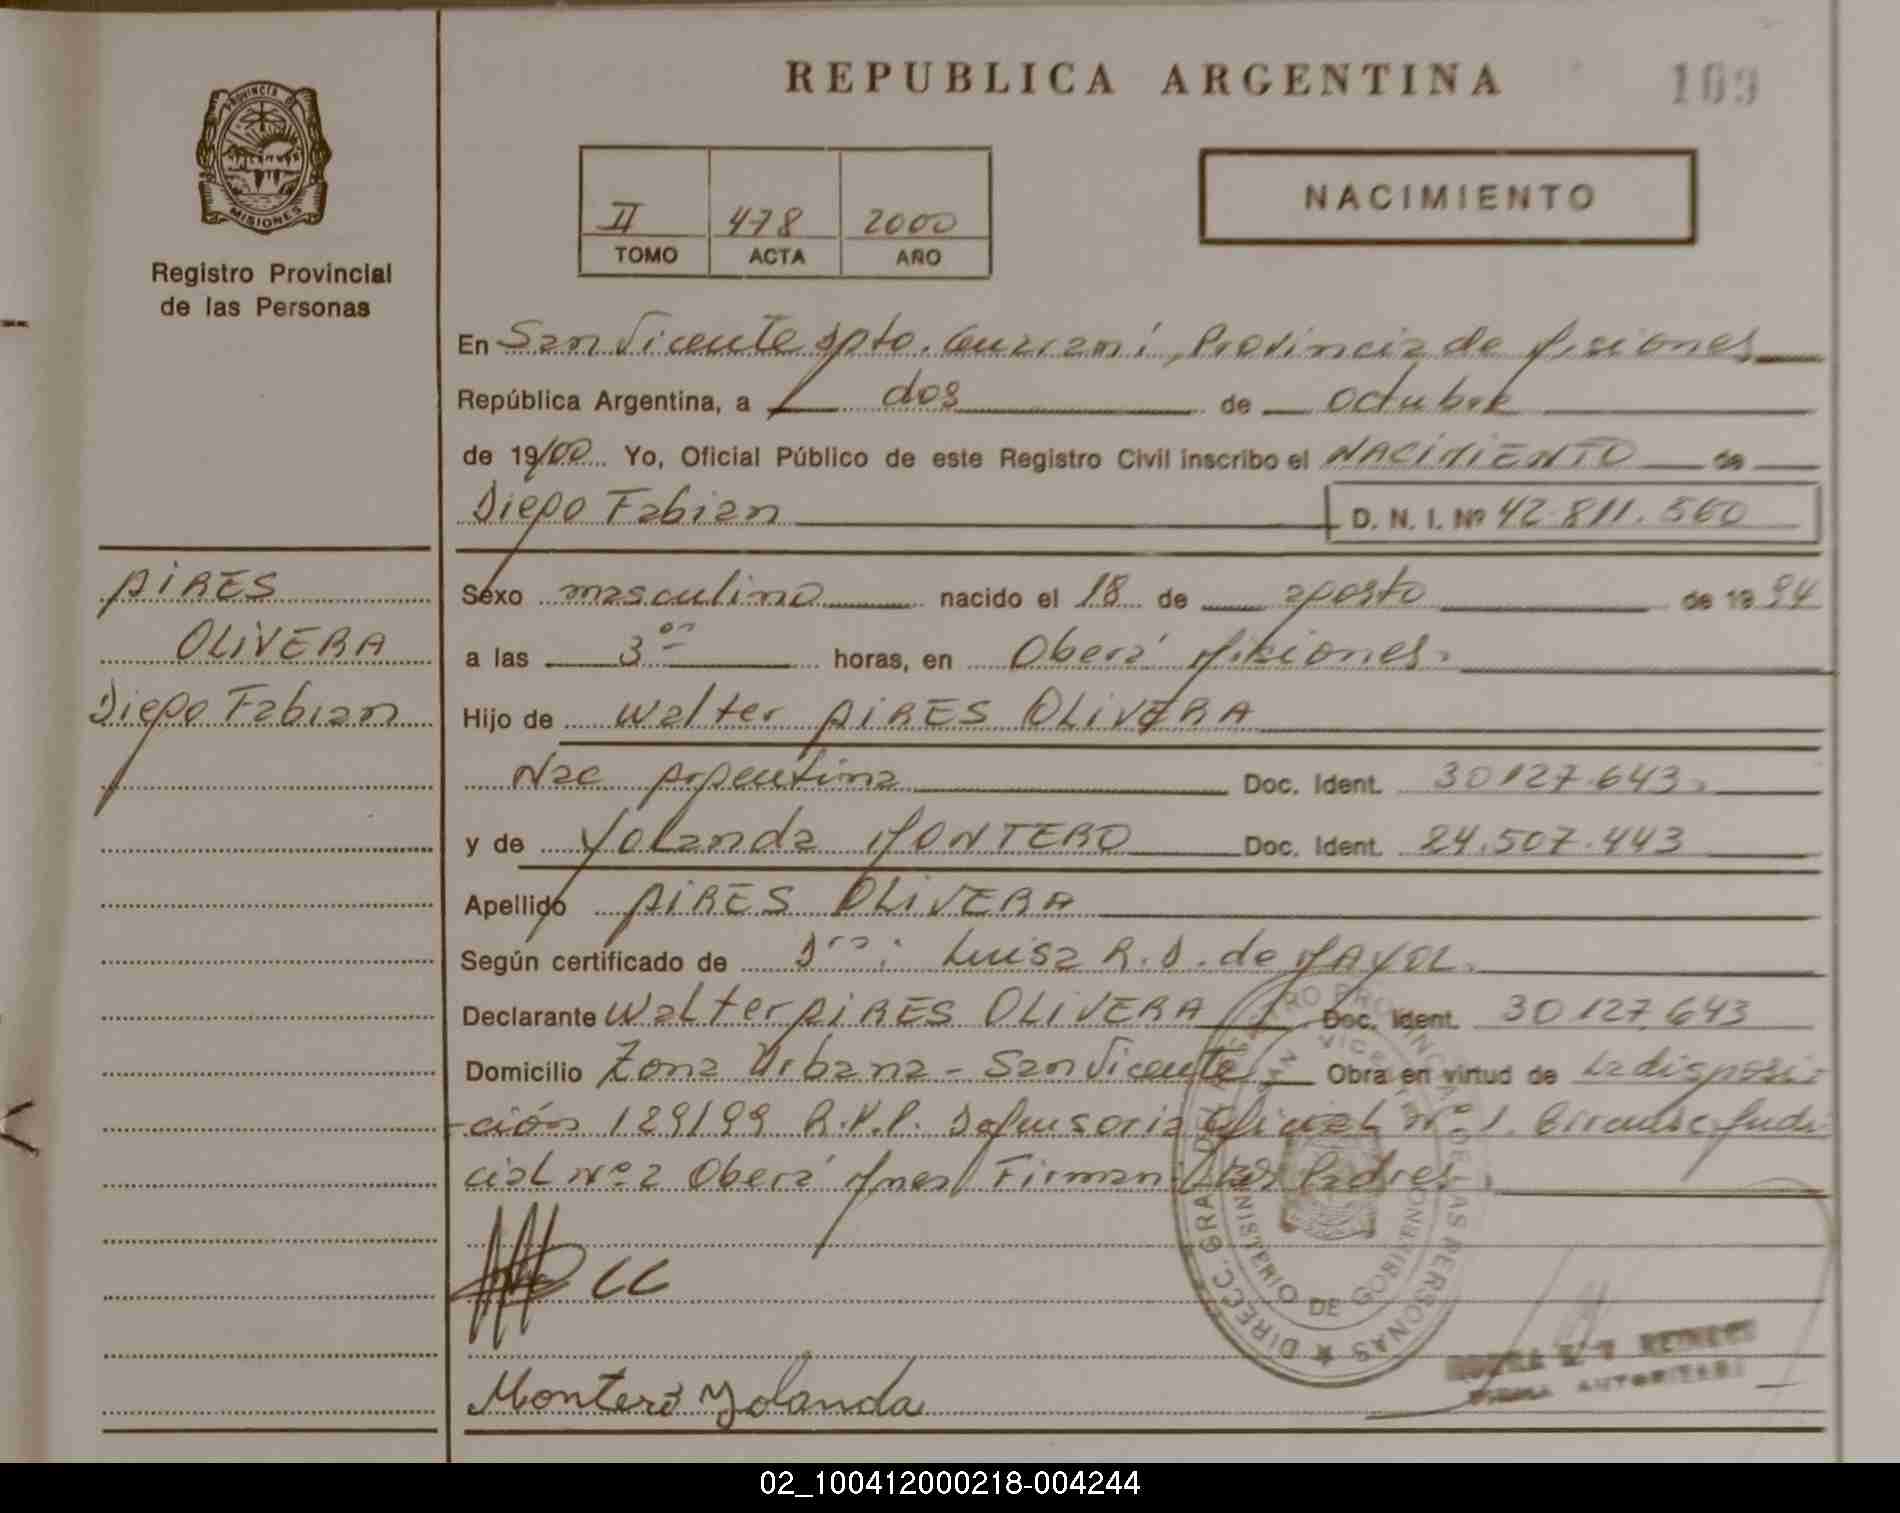 REPUBLICA ARGENTINA
109
PROVINCIA DE
MISIONES
Registro Provincial
de las Personas
II 478 2000
TOMO ACTA AÑO
NACIMIENTO
En San Vicente Dpto. Guarani, Provincia de Misiones
República Argentina, a dos de Octubre
de 19/00 Yo, Oficial Público de este Registro Civil inscribo el NACIMIENTO de
Diego Fabian D. N. I. Nº 42.811.560
PIRES
OLIVERA
Diego Fabian
Sexo masculino nacido el 18 de agosto de 1994
a las 3 horas, en Oberá Misiones.
Hijo de Walter PIRES OLIVERA
Nac Argentina Doc. Ident. 30127.643.
y de Yolanda MONTERO Doc. Ident. 24.507.443
Apellido PIRES OLIVERA
Según certificado de Dra: Luisa R. D. de MAYOL.
Declarante Walter PIRES OLIVERA Doc. Ident. 30127.643
Domicilio Zona Urbana - San Vicente Obra en virtud de La disposi-
-ción 129/99 R.P.P. Defensoria Oficial Nº 1. Circunsc Judi
cial Nº 2 Oberá Mnes/ Firman: Los Padres.
DIRECC. GRAL. DEL REGISTRO PROVINCIAL DE LAS PERSONAS
SAN VICENTE
MINISTERIO DE GOBIERNO
Montero Yolanda
FIRMA AUTORIZADA
02_100412000218-004244